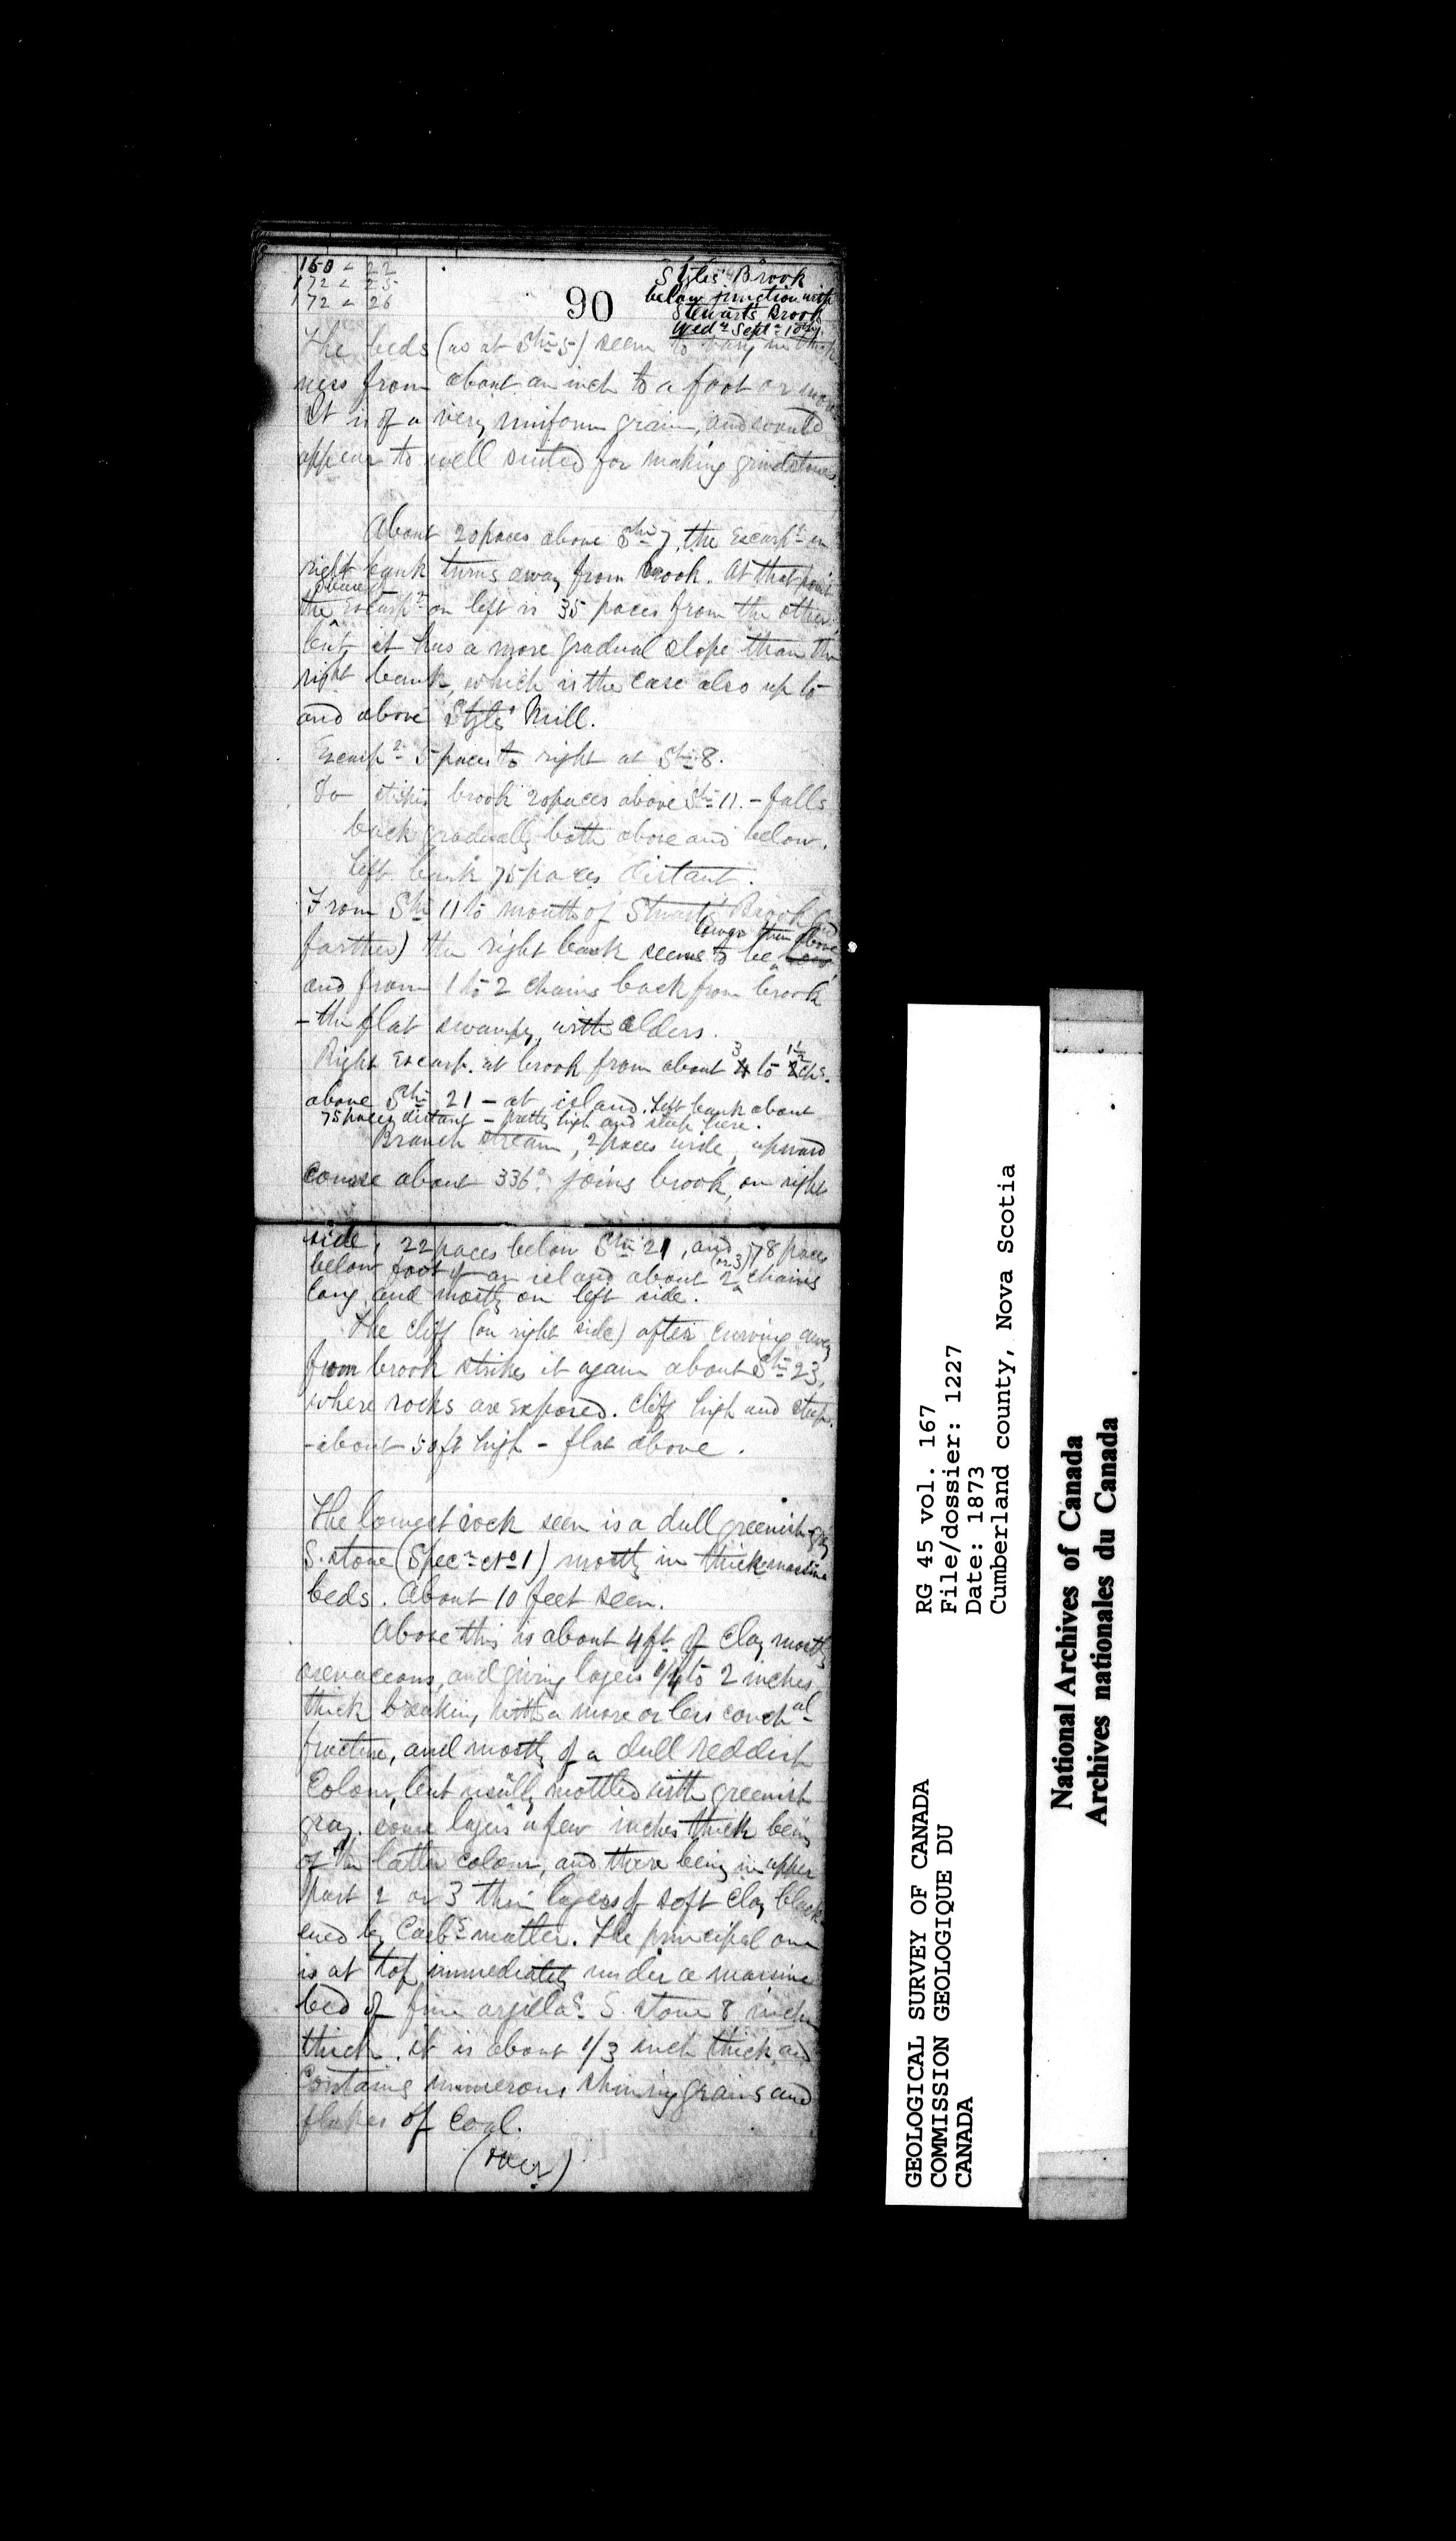 150 < 22
172 < 25
172 < 26
90
Styles' Brook
below junction with
Stewarts Brook
Wedy Septr 10th
The beds (as at Stn 5) seem to vary in thick-
ness from about an inch to a foot or more
It is of a very uniform grain, and would
appear to well suited for making grindstones.
About 20 paces above Stn 7, the Escarpt on
right bank turns away from brook. At that point
the Escarpt on left is 35 paces from the other
but it has a more gradual slope than the
right bank, which is the case also up to
and above Styles' Mill.
Escarpt 5 paces to right at Stn 8.
Do strikes brook 20 paces above Stn 11. - falls
back gradually both above and below.
Left bank 75 paces distant.
From Stn 11 to mouth of Stewarts Brook (and
farther) the right bank seems to be lower than above
and from 1 to 2 chains back from brook
- the flat swampy, with alders.
Right Escarp. at brook from about 3 to 1½ chs.
above Stn 21 - at island. Left bank about
75 paces distant - pretty high and steep here.
Branch stream, 2 paces wide, upward
course about 336°. joins brook, on right
side, 22 paces below Stn 21, and 78 paces
below foot of an island about 2 (or 3) chains
long and mostly on left side.
The cliff (on right side) after curving away
from brook strikes it again about Stn 23,
where rocks are exposed. Cliff high and steep.
- about 50 ft high - flat above.
The lowest rock seen is a dull greenish-gry
S. stone (Specn No 1) mostly in thick massive
beds. About 10 feet seen.
Above this is about 4 ft of clay mostly
arenaceous, and giving layers 1/4 to 2 inches
thick breaking with a more or less conchal
fracture, and mostly of a dull reddish
Colour, but usully mottled with greenish
gray. some layers a few inches thick being
of the latter colour, and there being in upper
part 2 or 3 thin layers of soft clay black
ened by Carbs matter. The principal one
is at top immediately under a massive
bed of fine argillas S. stone 8 inches
thick. it is about 1/3 inch thick and
Contains numerous shining grains and
flakes of Coal.
(Over)
GEOLOGICAL SURVEY OF CANADA
COMMISSION GEOLOGIQUE DU
CANADA
RG 45 vol. 167
File/dossier: 1227
Date: 1873
Cumberland county, Nova Scotia
National Archives of Canada
Archives nationales du Canada